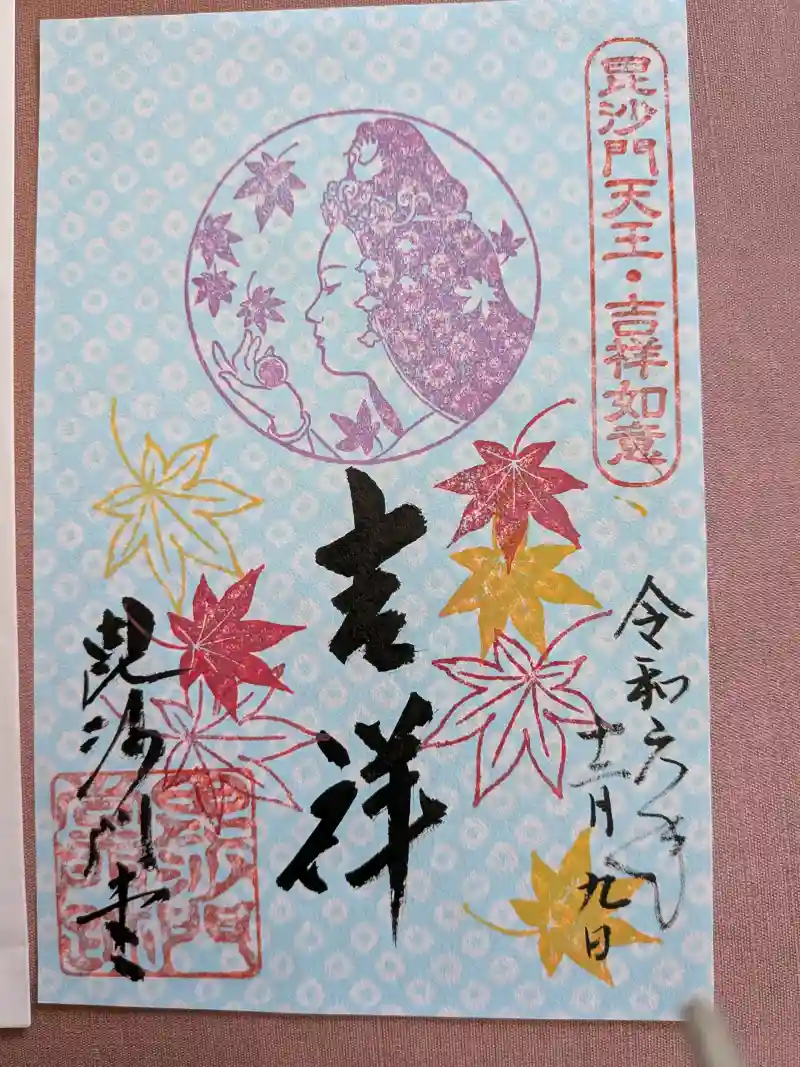 毘沙門天王・吉祥如意
令和六年
十二月九日
吉祥
毘沙門堂